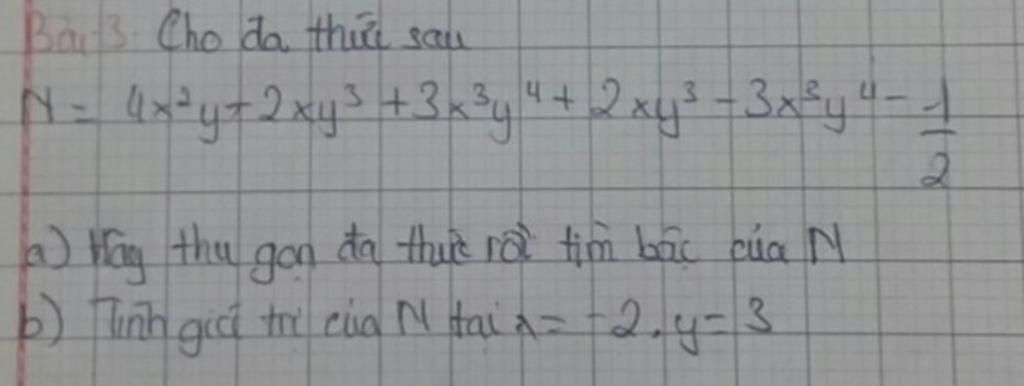 Bài 3 Cho đa thức sau
N = 4x²y + 2xy³ + 3x³y⁴ + 2xy³ - 3x³y⁴ - 1/2
a) Hãy thu gọn đa thức rồi tìm bậc của N
b) Tính giá trị của N tại x = -2, y = 3